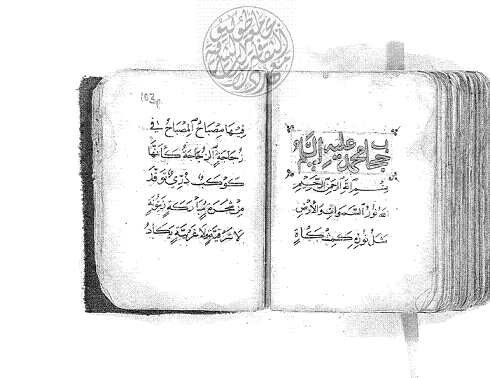 حجاب محمد عليه السلام
بسم الله الرحمن الرحيم
الله نور السموات والأرض
مثل نوره كمشكاة
103
فيها مصباح المصباح في
زجاجة الزجاجة كأنها
كوكب دري توقد
من شجرة مباركة زيتونة
لا شرقية ولا غربية يكاد